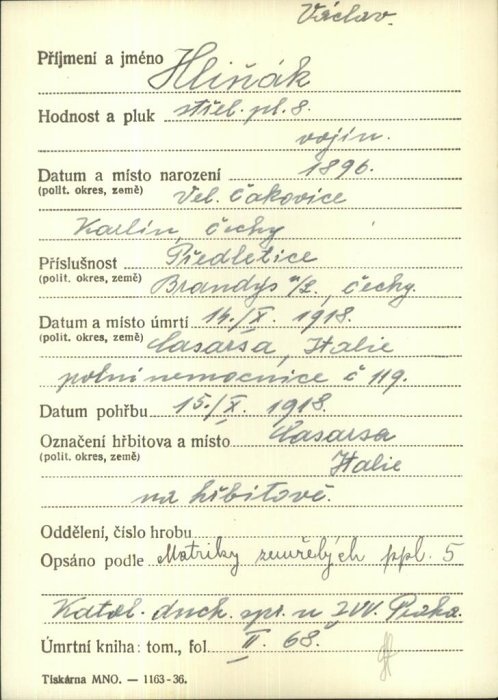 Václav.
Příjmení a jméno Hliňák
Hodnost a pluk střel. pl. 8.
vojín.
Datum a místo narození 1896.
(polit. okres, země) Vel. Čakovice
Karlín, Čechy
Příslušnost Předletice
(polit. okres, země) Brandýs n/L., Čechy.
Datum a místo úmrtí 14./X. 1918.
(polit. okres, země) Casarsa, Italie
polní nemocnice č 119.
Datum pohřbu 15./X. 1918.
Označení hřbitova a místo Casarsa
(polit. okres, země) Italie
na hřbitově.
Oddělení, číslo hrobu
Opsáno podle Matriky zemřelých ppl. 5
Katol. duch. spr. u ZVV. Praha.
Úmrtní kniha: tom., fol. II. 68.
Tiskárna MNO. — 1163-36.